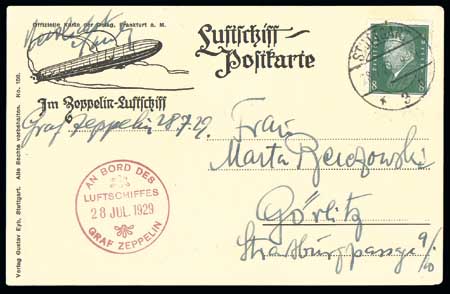 Offizielle Karte der Delag, Frankfurt a. M.
Luftschiff-
Postkarte
Im Zeppelin-Luftschiff
Graf Zeppelin 28.7.29.
Frau
Marta
Görlitz
Strasburgpassage 9/10
AN BORD DES
LUFTSCHIFFES
28 JUL. 1929
GRAF ZEPPELIN
8 8
Verlag Gustav Eyb, Stuttgart. Alle Rechte vorbehalten. No. 150.